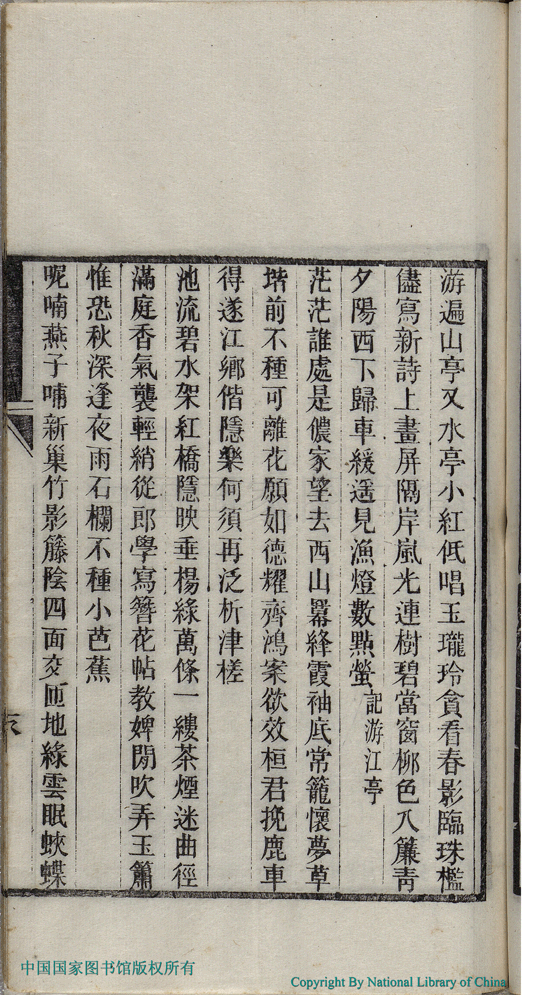 游遍山亭又水亭小紅低唱玉瓏玲貪看春影臨珠檻
儘寫新詩上畫屏隔岸嵐光連樹碧當窗柳色入簾青
夕陽西下歸車緩遥見漁燈數點螢記游江亭
茫茫誰處是儂家望去西山罥絳霞袖底常籠懷夢草
堦前不種可離花願如德耀齊鴻案欲效桓君挽鹿車
得遂江鄉偕隱樂何須再泛析津槎
池流碧水架紅橋隱映垂楊綠萬條一縷茶煙迷曲徑
滿庭香氣襲輕綃從郎學寫簪花帖教婢閒吹弄玉簫
惟恐秋深逢夜雨石欄不種小芭蕉
呢喃燕子哺新巢竹影籐陰四面交匝地綠雲眠蛺蝶
中国国家图书馆版权所有
Copyright By National Library of China